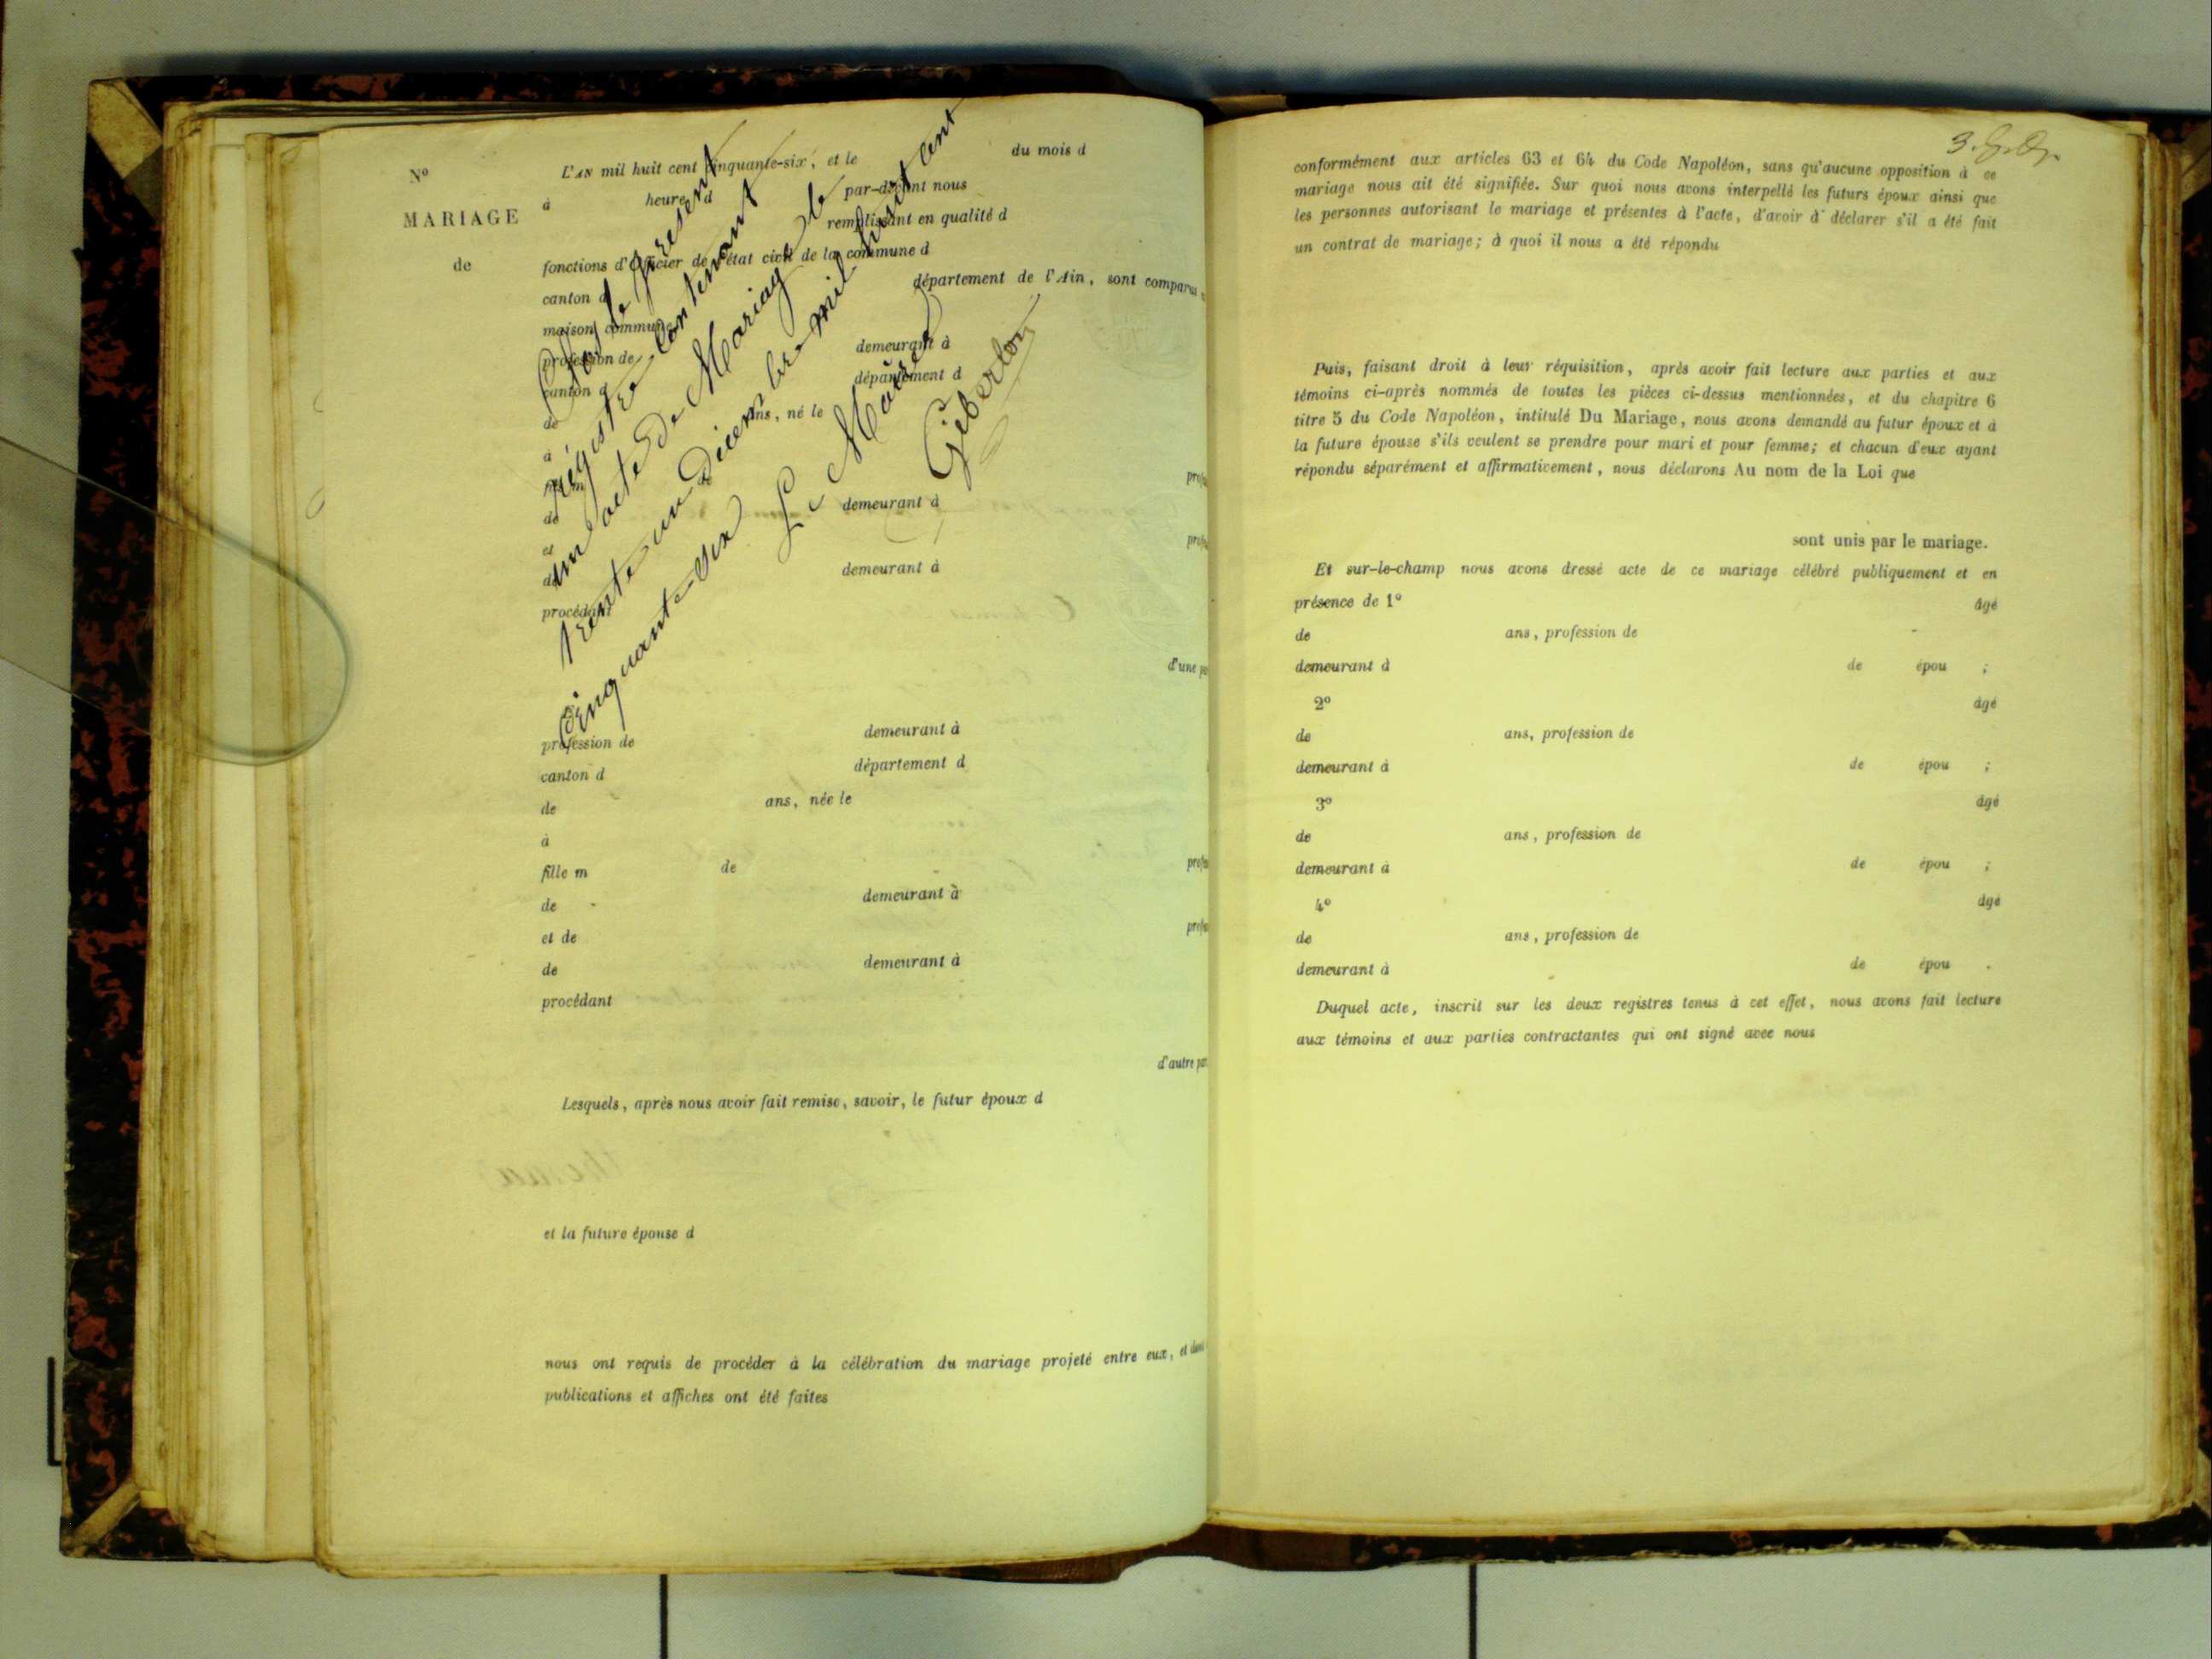 No
MARIAGE
de
L'AN mil huit cent cinquante-six, et le du mois d
à heure d par-devant nous
remplissant en qualité d
fonctions d'Officier de l'état civil de la commune d
canton d département de l'Ain, sont comparus
maison commune
profession de demeurant à
canton d département d
de ans, né le
à
fils m de profes
de demeurant à
et profes
de demeurant à
procédant
d'une par
Clos le présent
régistre contenant
un acte de Mariage le
trente un Décembre mil huit cent
Cinquante-six
Le Maire
Giberton
profession de demeurant à
canton d département d
de ans, née le
à
fille m de profes
de demeurant à
et de profes
de demeurant à
procédant
d'autre par
Lesquels, après nous avoir fait remise, savoir, le futur époux d
et la future épouse d
nous ont requis de procéder à la célébration du mariage projeté entre eux, et dont
publications et affiches ont été faites
conformément aux articles 63 et 64 du Code Napoléon, sans qu'aucune opposition à ce
mariage nous ait été signifiée. Sur quoi nous avons interpellé les futurs époux ainsi que
les personnes autorisant le mariage et présentes à l'acte, d'avoir à déclarer s'il a été fait
un contrat de mariage; à quoi il nous a été répondu
Puis, faisant droit à leur réquisition, après avoir fait lecture aux parties et aux
témoins ci-après nommés de toutes les pièces ci-dessus mentionnées, et du chapitre 6
titre 5 du Code Napoléon, intitulé Du Mariage, nous avons demandé au futur époux et à
la future épouse s'ils veulent se prendre pour mari et pour femme; et chacun d'eux ayant
répondu séparément et affirmativement, nous déclarons Au nom de la Loi que
sont unis par le mariage.
Et sur-le-champ nous avons dressé acte de ce mariage célébré publiquement et en
présence de 1o âgé
de ans, profession de
demeurant à de épou ;
2o âgé
de ans, profession de
demeurant à de épou ;
3o âgé
de ans, profession de
demeurant à de épou ;
4o âgé
de ans, profession de
demeurant à de épou .
Duquel acte, inscrit sur les deux registres tenus à cet effet, nous avons fait lecture
aux témoins et aux parties contractantes qui ont signé avec nous